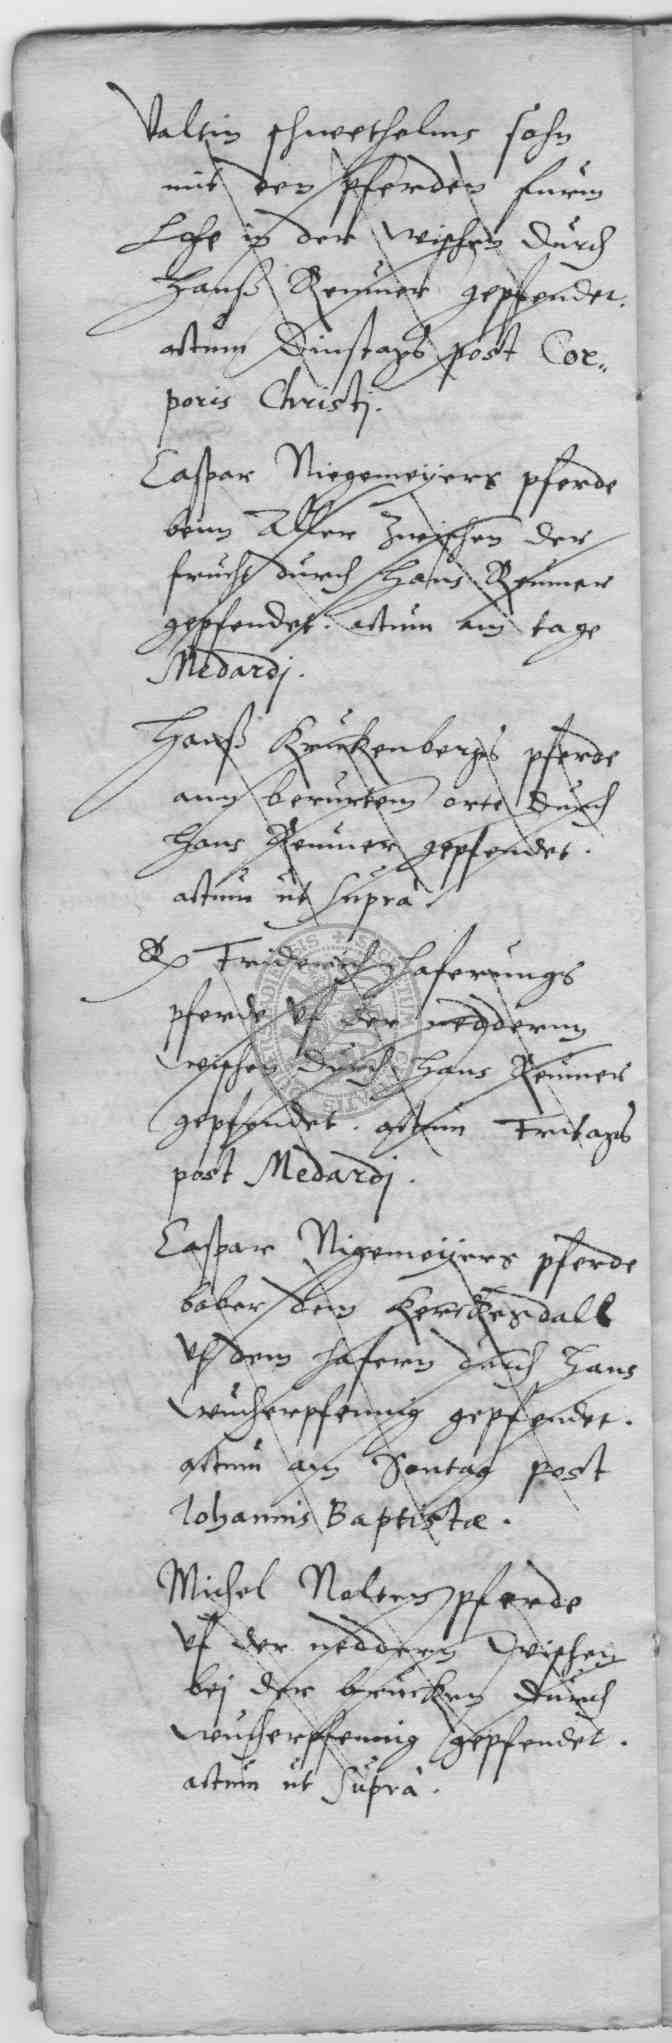 Valtin schwethelms sohn
mit den pferden furm
Lohe in der wischen durch
Hanß Reumer gepfendet.
actum Dinstags post Cor-
poris Christj.
Caspar Niegemeyers pferde
beim Aller zwischen der
frucht durch Hans Reumer
gepfendet. actum am tage
Medardj.
Hanß Kruckenbergs pferde
ann berurtem orte durch
Hans Reumer gepfendet.
actum ut Supra.
Friderich Haferungs
pferde uf der neddernn
wischen durch Hans Reumer
gepfendet. actum Fritags
post Medardj.
Caspar Nigemeyers pferde
bober dem Kerckesdall
uf dem hafern durch Hans
wucherpfennig gepfendet.
actum am Sontag post
Iohannis Baptistæ.
Michel Nolten pferde
uf der neddern wischen
bej der brucken durch
wucherpfennig gepfendet.
actum ut Supra.